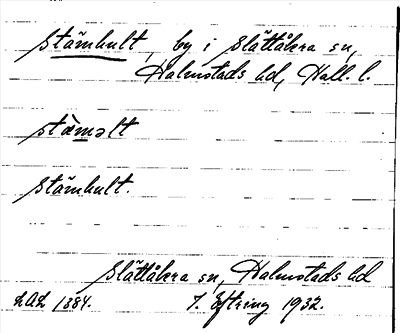 Stämhult, by i Slättåkra sn,
Halmstads hd, Hall. l.
stä̀məlt
Stämhult.
Slättåkra sn, Halmstads hd
LAL 1384. 7. öftring 1932.